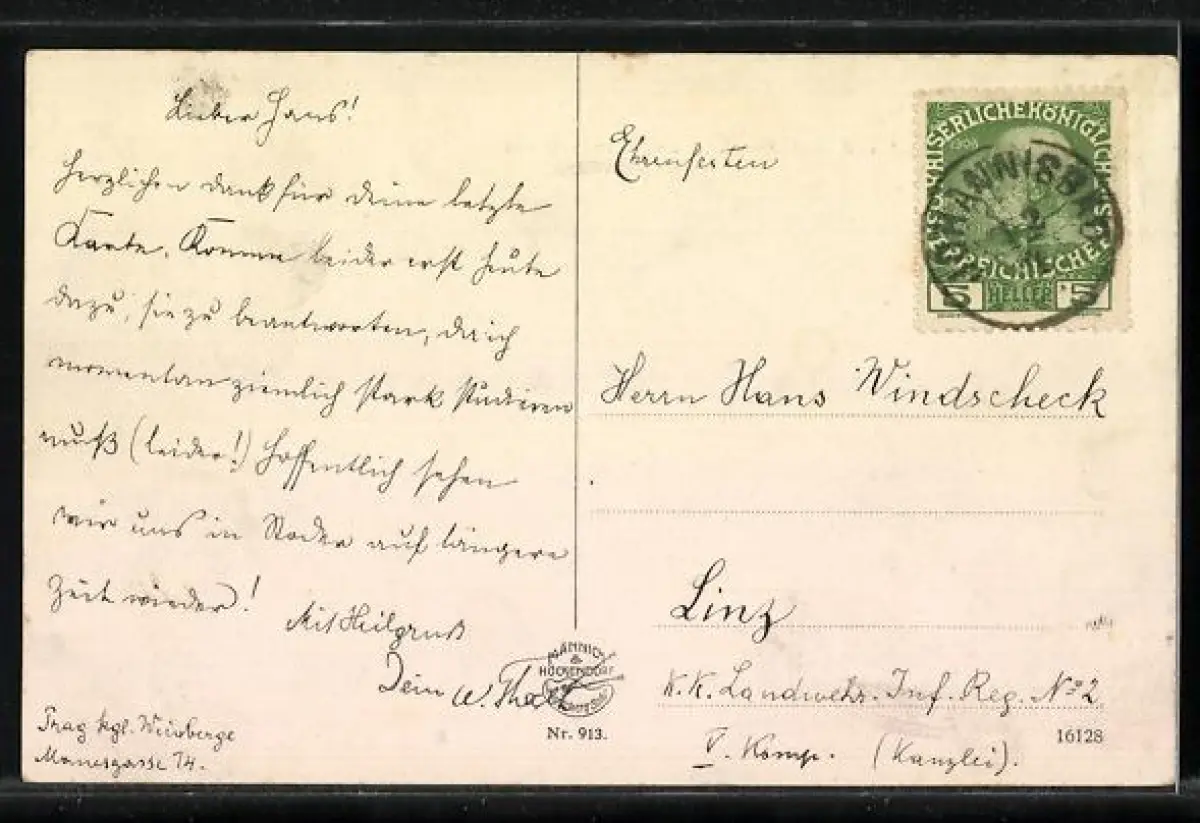 Lieber Hans!
Herzlichen Dank für Deine letzte
Karte. Komme leider erst heute
dazu, sie zu beantworten, da ich
momentan ziemlich stark studieren
muß (leider!) Hoffentlich sehen
wir uns in Roder auf längere
Zeit wieder!
Mit Heilgruß
Dein W.
Prag kgl. Weinberge
Manesgasse 74.
MÄNNICH
&
HÖCKENDORF
Nr. 913.
Ehrenfesten
KAISERLICHE KÖNIGLICHE
ÖSTERREICHISCHE
1908
5 HELLER 5
Herrn Hans Windscheck
Linz
K.K. Landwehr. Inf. Reg. No 2
V. Komp. (Kanzlei).
16128